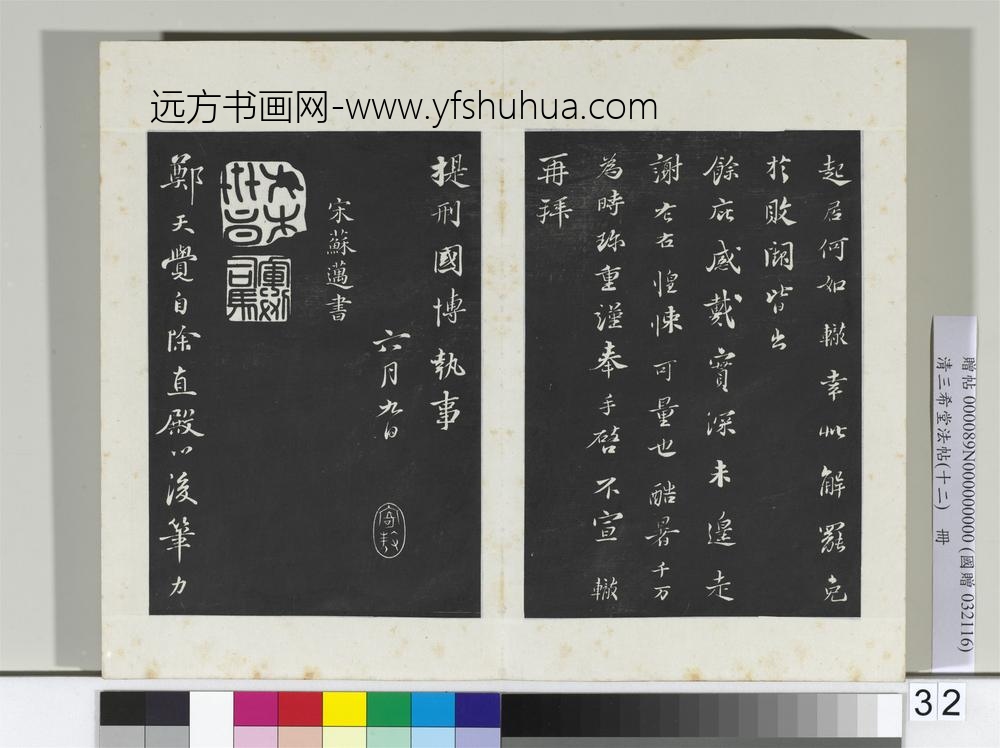 远方书画网-www.yfshuhua.com
起居何如轍幸此解罷免
於敗闕皆出
餘庇感戴實深未遑走
謝左右惶悚可量也酷暑千万
為時珍重謹奉手啓不宣 轍
再拜
提刑國博執事
六月九日
宋蘇邁書
鄭天覺自除直殿以後筆力
贈帖 000089N000000000 (國贈 032116)
清三希堂法帖(十二) 冊
32